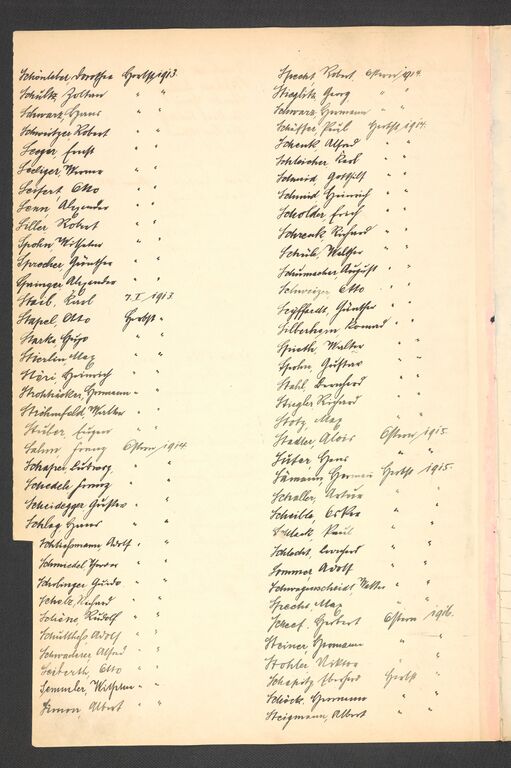 Schönleber Dorothea Herbst 1913
Schultz Zoltan " "
Schwarz, Hans " "
Schweitzer Robert " "
Seeger, Ernst " "
Seeliger, Werner " "
Seifert Otto " "
Senn, Alexander " "
Siller Robert " "
Spohn Wilhelm " "
Sprecher, Günther " "
Alexander " "
Staub, Karl 7. I. 1913
Stapel, Otto Herbst "
Starke Hugo " "
Stierlen Max " "
Heinrich " "
Hermann " "
Ströhmfeld, Walter " "
Stüber, Eugen " "
Franz Ostern, 1914.
Schäfer, Ludwig " "
Schedele Franz " "
Scheidegger Gustav " "
Schlag Hans " "
Schliessmann, Adolf " "
Schmiedel " "
Guido " "
Scholz, Richard " "
Schöne, Rudolf " "
Schultheiss Adolf " "
Schwaderer Alfred " "
Seiberth, Otto " "
Semmler, Wilhelm " "
Simon, Albert " "
Specht Robert Ostern, 1914.
Stieglitz Georg " "
Schwarz, Hermann " "
Karl Herbst, 1914.
Schenk Alfred " "
Schleicher Karl " "
Schmid Gotthilf " "
Schmid Heinrich " "
Scholder Erich " "
Schrenk Richard " "
Schüle, Walther " "
Schumacher August " "
Schweizer Otto " "
Seyffardt, Günther " "
Konrad " "
Spieth, Walter " "
Spohn, Gustav " "
Stahl Bernhard " "
Stiegler Richard " "
Stotz, Max " "
Stadler, Alois Ostern, 1915.
Suter Hans " "
Sämann, Herbst 1915.
Schaller, Artur " "
Scheible, Oskar " "
Schleck Paul " "
Schlecht, Bernhard " "
Sommer, Adolf " "
Schwagenscheidt, Walter " "
Sprecht, Max " "
Herbert Ostern, 1916.
Steiner Hermann " "
Stohler Viktor " "
Eberhard Herbst "
Schöck, Hermann " "
Steigmann, Albert " "